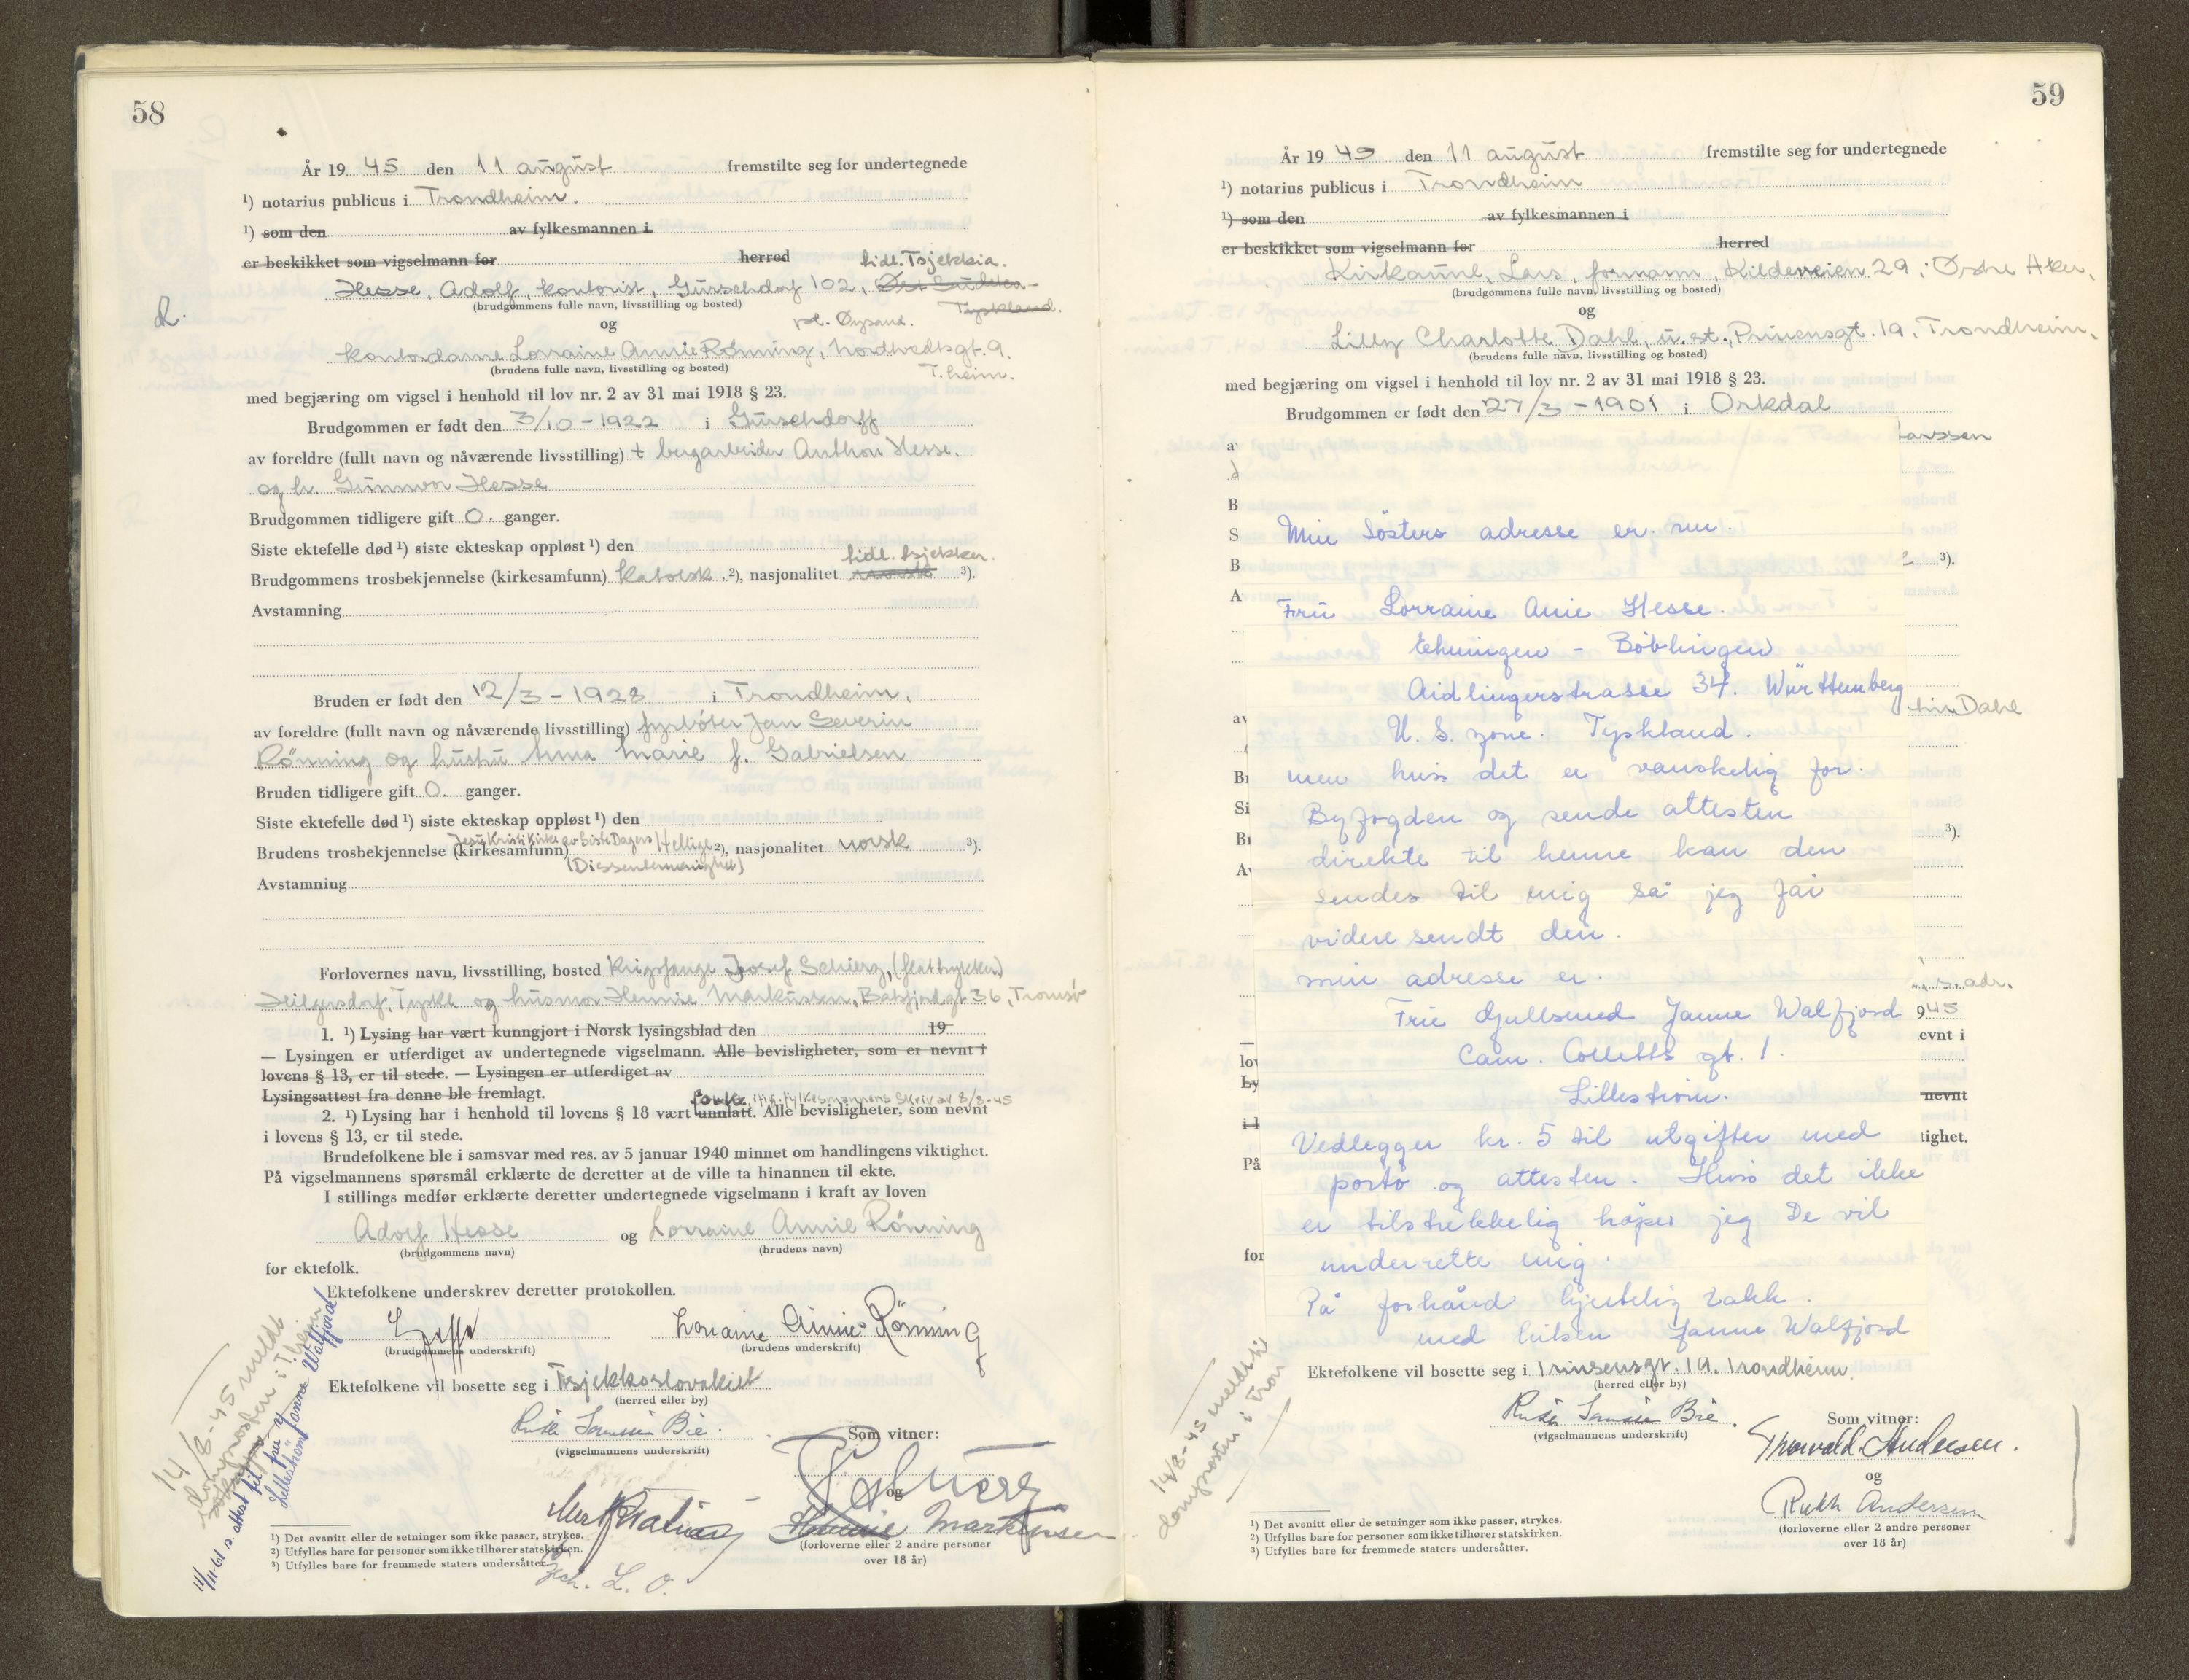 58
År 19 45 den 11 august fremstilte seg for undertegnede
¹) notarius publicus i Trondheim.
¹) som den av fylkesmannen i
er beskikket som vigselmann for herred tidl. Tsjekkia.
Hesse, Adolf, kontorist, Gurschdorf 102,
Tyskland.
(brudgommens fulle navn, livsstilling og bosted)
Øysand.
og
kontordame Lorraine Annie Rönning, Nordtvedtsgt. 9.
(brudens fulle navn, livsstilling og bosted)
T.heim.
med begjæring om vigsel i henhold til lov nr. 2 av 31 mai 1918 § 23.
Brudgommen er født den 3/10 - 1922 i Gurschdorff
av foreldre (fullt navn og nåværende livsstilling) + bergarbeider Anthon Hesse.
og h. Gunnvor Hesse
Brudgommen tidligere gift 0. ganger.
Siste ektefelle død ¹) siste ekteskap oppløst ¹) den
tidl. tsjekker.
Brudgommens trosbekjennelse (kirkesamfunn) katolsk. ²), nasjonalitet norsk ³).
Avstamning
Bruden er født den 12/3 - 1928 i Trondheim.
av foreldre (fullt navn og nåværende livsstilling) fyrbøter Jan Severin
Rönning og hustru Anna Marie f. Gabrielsen
Bruden tidligere gift 0. ganger.
Siste ektefelle død ¹) siste ekteskap oppløst ¹) den
Jesu Kristi Kirke av Siste Dagers Hellige
Brudens trosbekjennelse (kirkesamfunn) ²), nasjonalitet norsk ³).
(Dissentermenighet)
Avstamning
Forlovernes navn, livsstilling, bosted krigsfange Josef Schierz, (flattrykker)
Heilgersdorf, Tyskl. og husmor Hennie Markussen, Balsfjordgt 36, Tromsö
1. ¹) Lysing har vært kunngjort i Norsk lysingsblad den 19
— Lysingen er utferdiget av undertegnede vigselmann. Alle bevisligheter, som er nevnt i
lovens § 13, er til stede. — Lysingen er utferdiget av
Lysingsattest fra denne ble fremlagt.
fylkesmannens skriv av 8/8-45
2. ¹) Lysing har i henhold til lovens § 18 vært unnlatt. Alle bevisligheter, som nevnt
i lovens § 13, er til stede.
Brudefolkene ble i samsvar med res. av 5 januar 1940 minnet om handlingens viktighet.
På vigselmannens spørsmål erklærte de deretter at de ville ta hinannen til ekte.
I stillings medfør erklærte deretter undertegnede vigselmann i kraft av loven
Adolf Hesse og Lorraine Annie Rönning
(brudgommens navn) (brudens navn)
for ektefolk.
Ektefolkene underskrev deretter protokollen.
Hesse Lorraine Annie Rönning
(brudgommens underskrift) (brudens underskrift)
Ektefolkene vil bosette seg i Tsjekkoslovakiet
(herred eller by)
(vigselmannens underskrift)
Som vitner:
og
Hennie Markussen
(forloverne eller 2 andre personer
over 18 år)
14/8-45 meldt
domprosten i T.heim
11/11-61 s. attest til fru
Janne Walfjord
Lillestrøm
¹) Det avsnitt eller de setninger som ikke passer, strykes.
²) Utfylles bare for personer som ikke tilhører statskirken.
³) Utfylles bare for fremmede staters undersåtter.
59
År 19 45 den 11 august fremstilte seg for undertegnede
¹) notarius publicus i Trondheim
¹) som den av fylkesmannen i
er beskikket som vigselmann for herred
Kirkaune, Lars, formann, Kildeveien 29, Østre Aker,
(brudgommens fulle navn, livsstilling og bosted)
og
Lilly Charlotte Dahl, u. st., Prinsensgt. 19, Trondheim.
(brudens fulle navn, livsstilling og bosted)
med begjæring om vigsel i henhold til lov nr. 2 av 31 mai 1918 § 23.
Brudgommen er født den 27/3 - 1901 i Orkdal
Min Søsters adresse er nu.
Fru Lorraine Anie Hesse.
Ehningen - Böblingen
Aidlingerstrasse 34. Württemberg
U. S. zone. Tyskland.
men hvis det er vanskelig for
Byfogden og sende attesten
direkte til henne kan den
sendes til mig så jeg får
videre sendt den.
min adresse er.
Fru Gullmund Janne Walfjord
Cam. Colletts gt. 1.
Lillestrøm.
Vedlegger kr. 5 til utgifter med
porto og attesten. Hvis det ikke
er tilstrekkelig håper jeg De vil
underrette mig.
På forhånd hjertelig takk.
med hilsen Janne Walfjord
Dahl
s. adr.
945
evnt i
nevnt
tighet.
Ektefolkene vil bosette seg i Prinsensgt. 19, Trondheim.
(herred eller by)
(vigselmannens underskrift)
Som vitner:
Thorvald Andersen.
og
Ruth Andersen
(forloverne eller 2 andre personer
over 18 år)
14/8-45 meldt
domprosten i Tron
¹) Det avsnitt eller de setninger som ikke passer, strykes.
²) Utfylles bare for personer som ikke tilhører statskirken.
³) Utfylles bare for fremmede staters undersåtter.